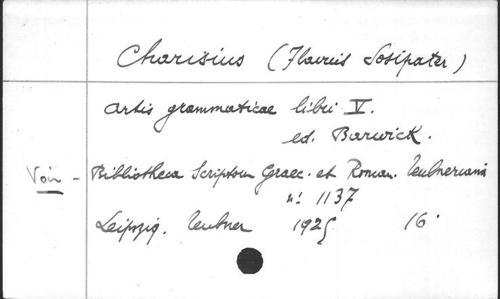 Charisius (Flavius Sosipater)
Artis grammaticae libri V.
ed. Barwick.
Voir - Bibliotheca Scriptorum Graec. et Roman. Teubneriana
n: 1137
Leipzig. Teubner 1925 16°